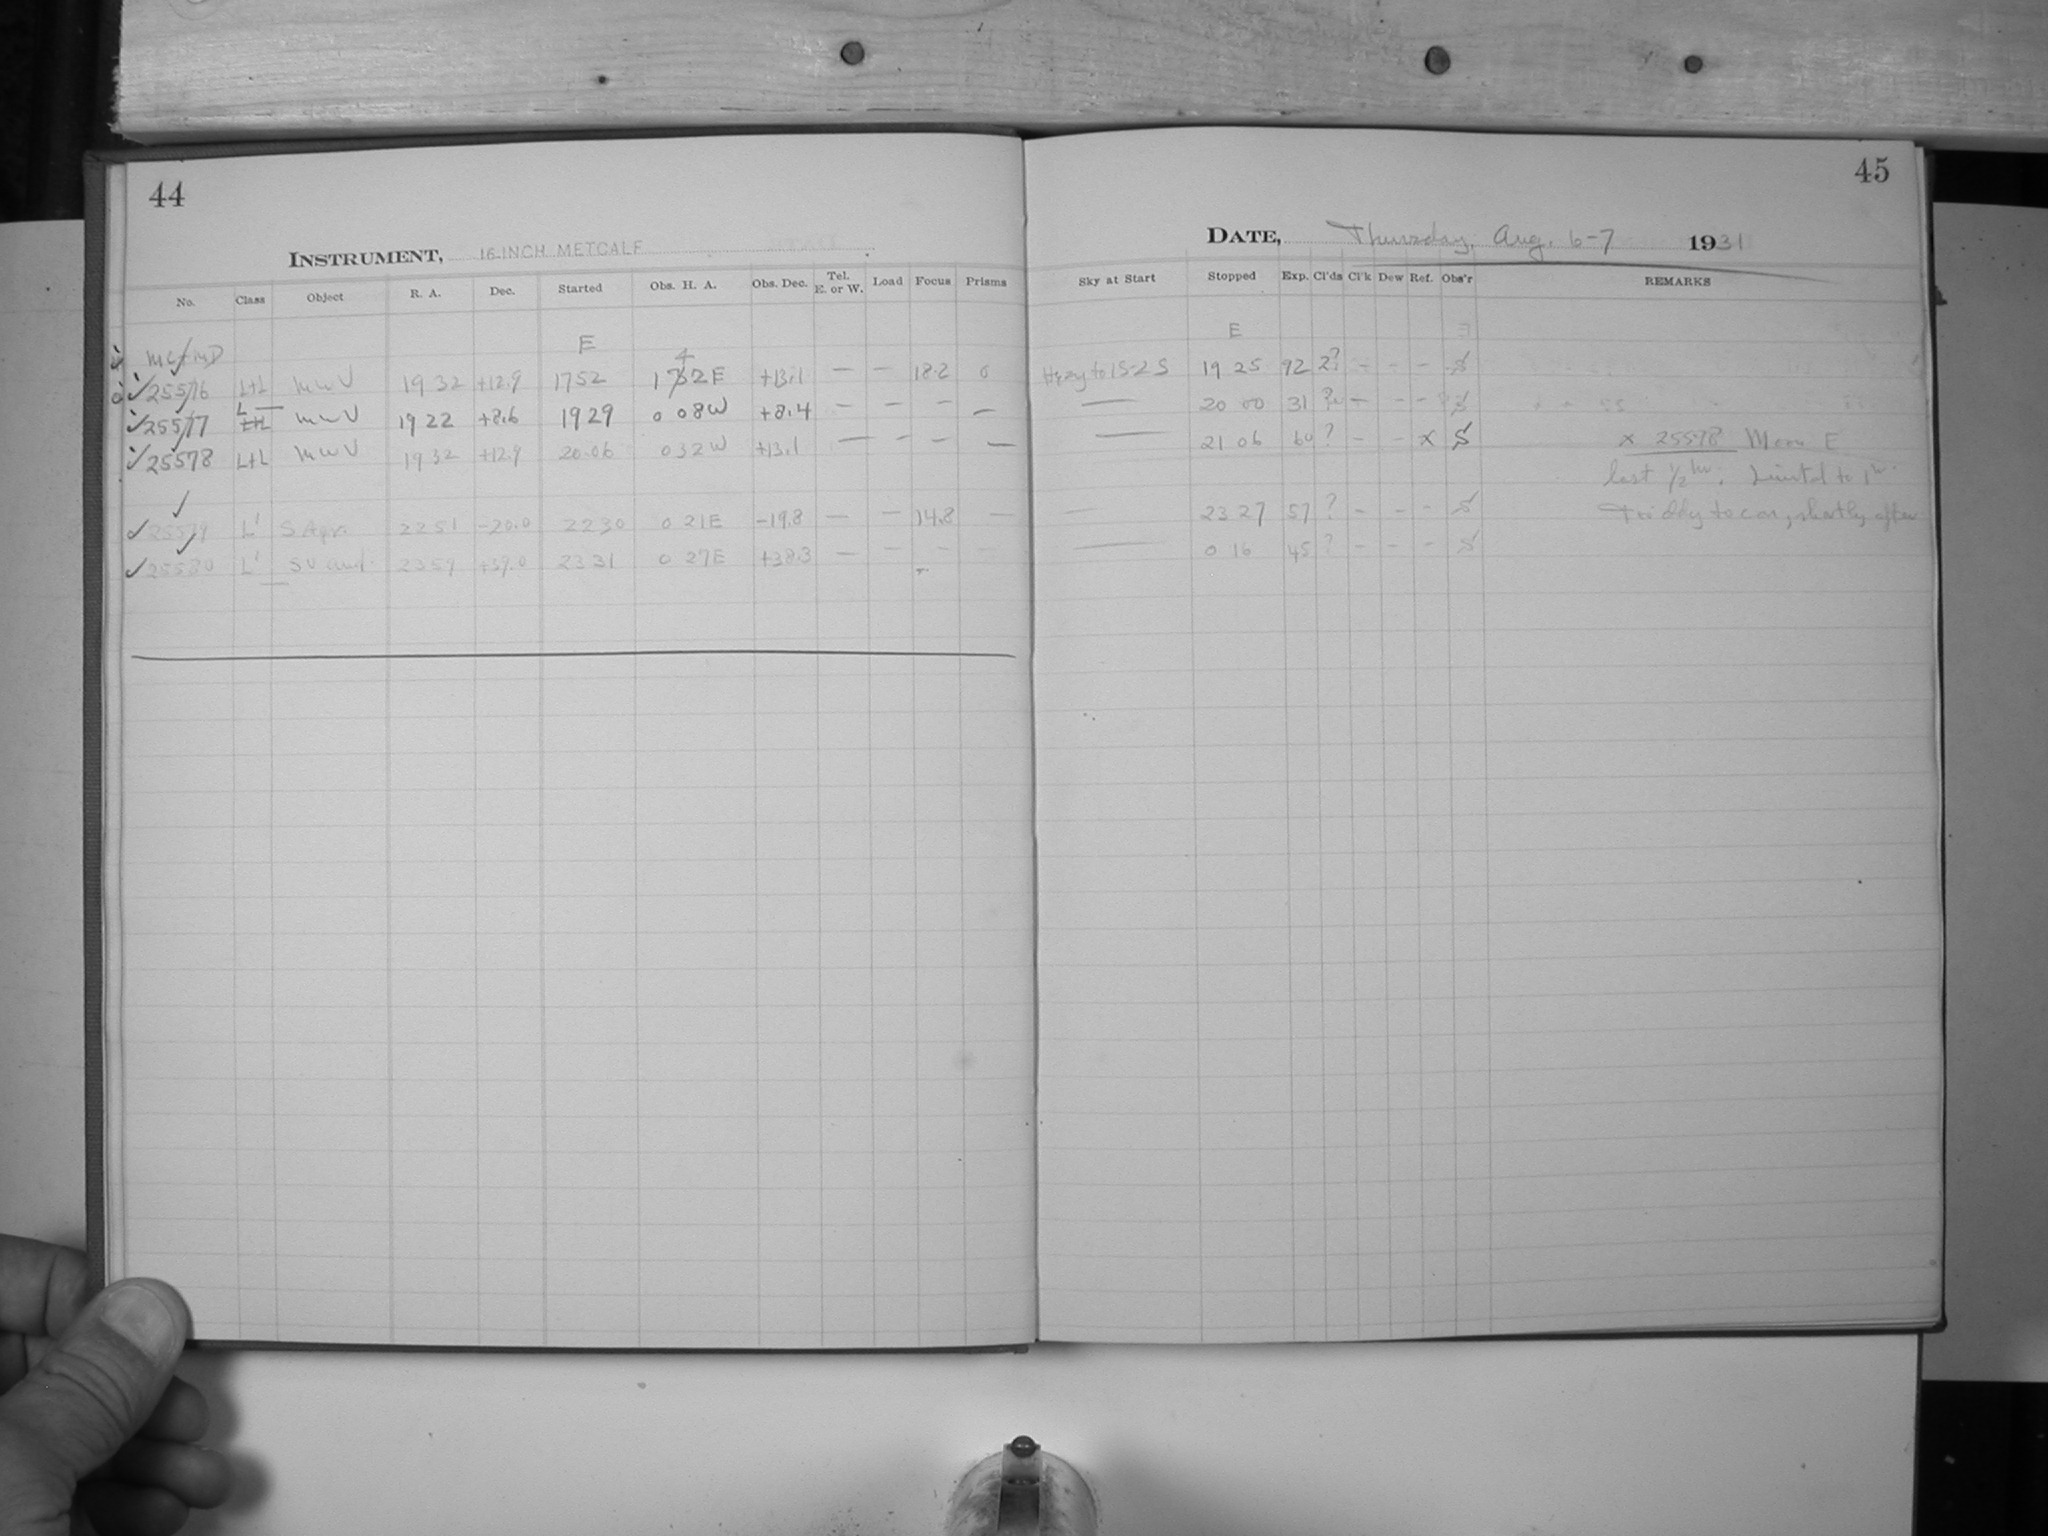 44
INSTRUMENT, 16-INCH METCALF
No. Class Object R. A. Dec. Started Obs. H. A. Obs. Dec. Tel. E. or W. Load Focus Prisms
E
25576 L+L MWV 19 32 +12.9 1752 1 32 E +13.1 — — 18.2 0
25577 L MWV 19 22 +8.6 1929 0 08W +8.4 — — — —
25578 L+L MWV 19 32 +12.9 20 06 0 32 W +13.1 — — — —
25579 L' S Aqr. 22 51 -20.0 22 30 0 21E -19.8 — — 14.8 —
25580 L' SV And. 23 59 +39.0 23 31 0 27E +38.3 — — — —
45
DATE, Thursday, Aug. 6-7 1931
Sky at Start Stopped Exp. Cl'ds Cl'k Dew Ref. Obs'r REMARKS
E
Hazy to 15-2 S 19 25 92 2? - - - S
— 20 00 31 ? - - - S
— 21 06 60 ? - - x S x 25578 Moon E
last 1/2 hr. Limited to 1 hr.
— 23 27 57 ? - - - S shortly after
— 0 16 45 ? - - - S